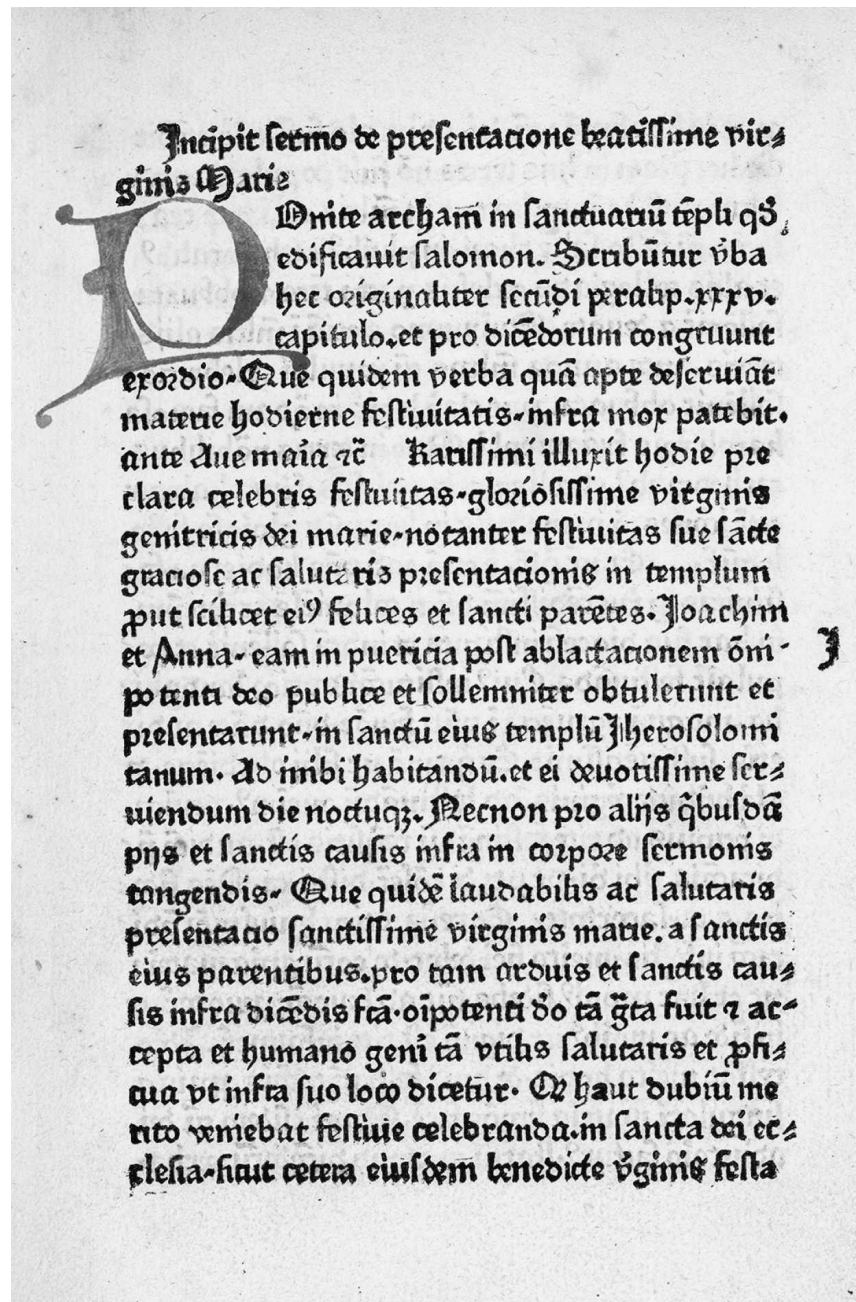 Incipit sermo de presentacione beatissime vir⸗
ginis Marie
POnite archam in sanctuariū tēpli qḋ
edificauit salomon. Scribūtur v̄ba
hec originaliter secūdi peralip.xxxv.
capitulo.et pro dicēdorum congruunt
exordio. Que quidem verba quā apte deseruiāt
materie hodierne festiuitatis.infra mox patebit.
ante Aue maīa ⁊c̄ Karissimi illuxit hodie pre
clara celebris festiuitas.gloriosissime virginis
genitricis dei marie.notanter festiuitas sue sācte
graciose ac salutaris presentacionis in templum
ꝓut scilicet eiꝰ felices et sancti parētes. Joachim
et Anna. eam in puericia post ablactacionem ōni⸗
potenti deo publice et sollemniter obtulerunt et
presentarunt.in sanctū eius templū Jherosolomi
tanum. Ad inibi habitandū.et ei deuotissime ser⸗
uiendum die noctuqꝫ. Necnon pro alijs q̄busdā
pijs et sanctis causis infra in corpore sermonis
tangendis. Que quidē laudabilis ac salutaris
presentacio sanctissime virginis marie. a sanctis
eius parentibus.pro tam arduis et sanctis cau⸗
sis infra dicēdis fcā.oīpotenti d̄o tā ḡta fuit ⁊ ac⸗
cepta et humano geni tā vtilis salutaris et ꝓfi⸗
cua vt infra suo loco dicetur. Qr haut dubiū me
rito veniebat festiuie celebranda.in sancta dei ec⸗
clesia.sicut cetera eiusdem benedicte v̄ginis festa
J